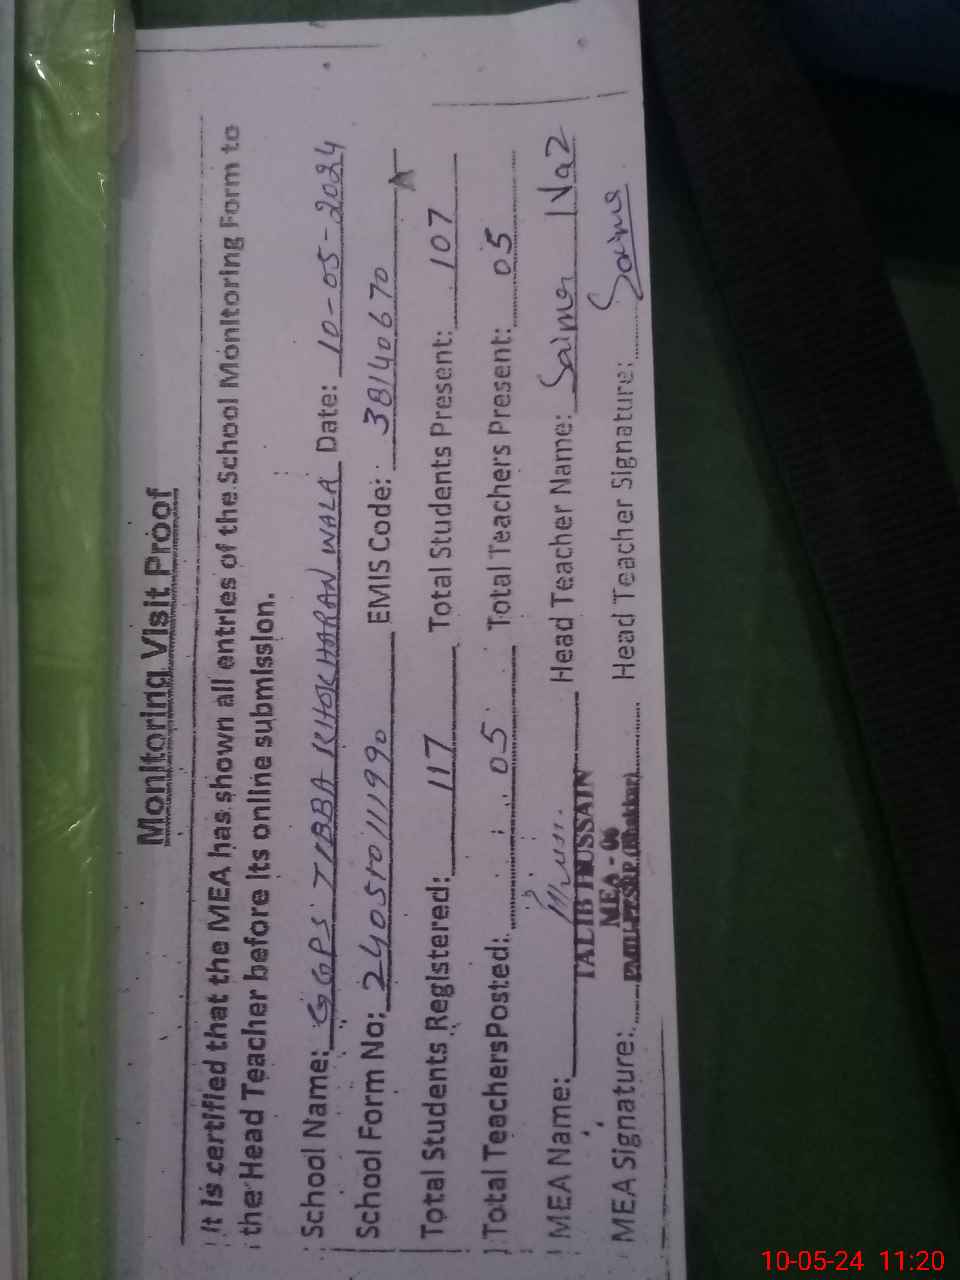 Monitoring Visit Proof
It is certified that the MEA has shown all entries of the School Monitoring Form to
the Head Teacher before its online submission.
School Name: GGPS TIBBA KHOKHARAN WALA Date: 10-05-2024
School Form No: 240510111990 EMIS Code: 38140670
Total Students Registered: 117 Total Students Present: 107
Total TeachersPosted: 05 Total Teachers Present: 05
MEA Name: Head Teacher Name: Saima Naz
TALIB HUSSAIN
MEA - 06
MEA Signature: (Bhakkar) Head Teacher Signature: Saima
10-05-24 11:20